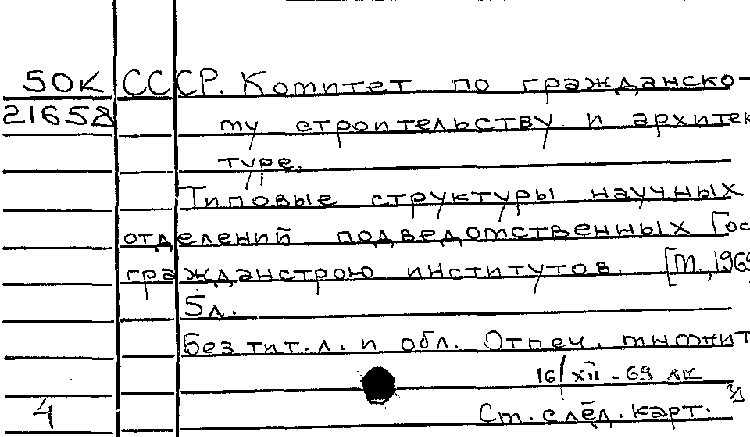 50К СССР. Комитет по гражданско-
21658 му строительству и архитек
туре.
Типовые структуры научных
отделений подведомственных Гос
гражданстрою институтов. [М., 1969
5л.
Без тит.л. и обл. Отпеч. множит
16/XII-69 лк
4 См. след. карт.